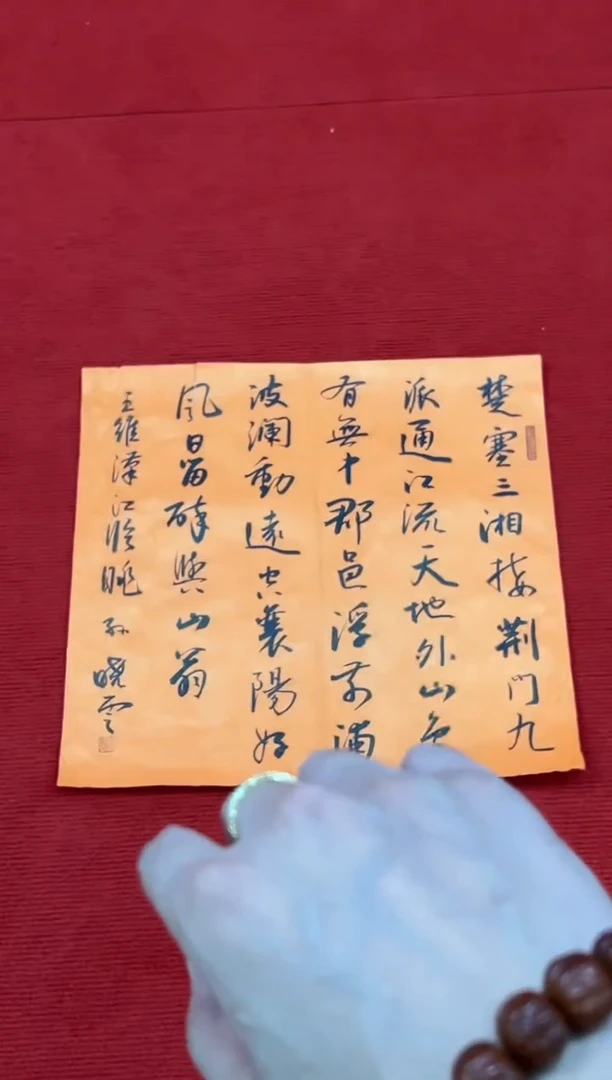 楚塞三湘接荆門九
派通江流天地外山色
有無中郡邑浮前浦
波瀾動遠空襄陽好
風日留醉與山翁
王維漢江臨眺 孫曉雲